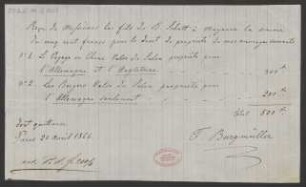 Reçu de Messieurs les fils de B. Schott à Mayence la somme
de cinq cent francs pour le droit de propriété de mes arrangements
N° 1. Le Voyage en Chine Valse de Salon propriété pour
l'Allemagne et l'Angleterre 300 fr
N° 2. Les Bergers Valse de Salon propriété pour
l'Allemagne seulement 200 fr
500 fr
dont quittance
Paris 20 avril 1866
F. Burgmüller